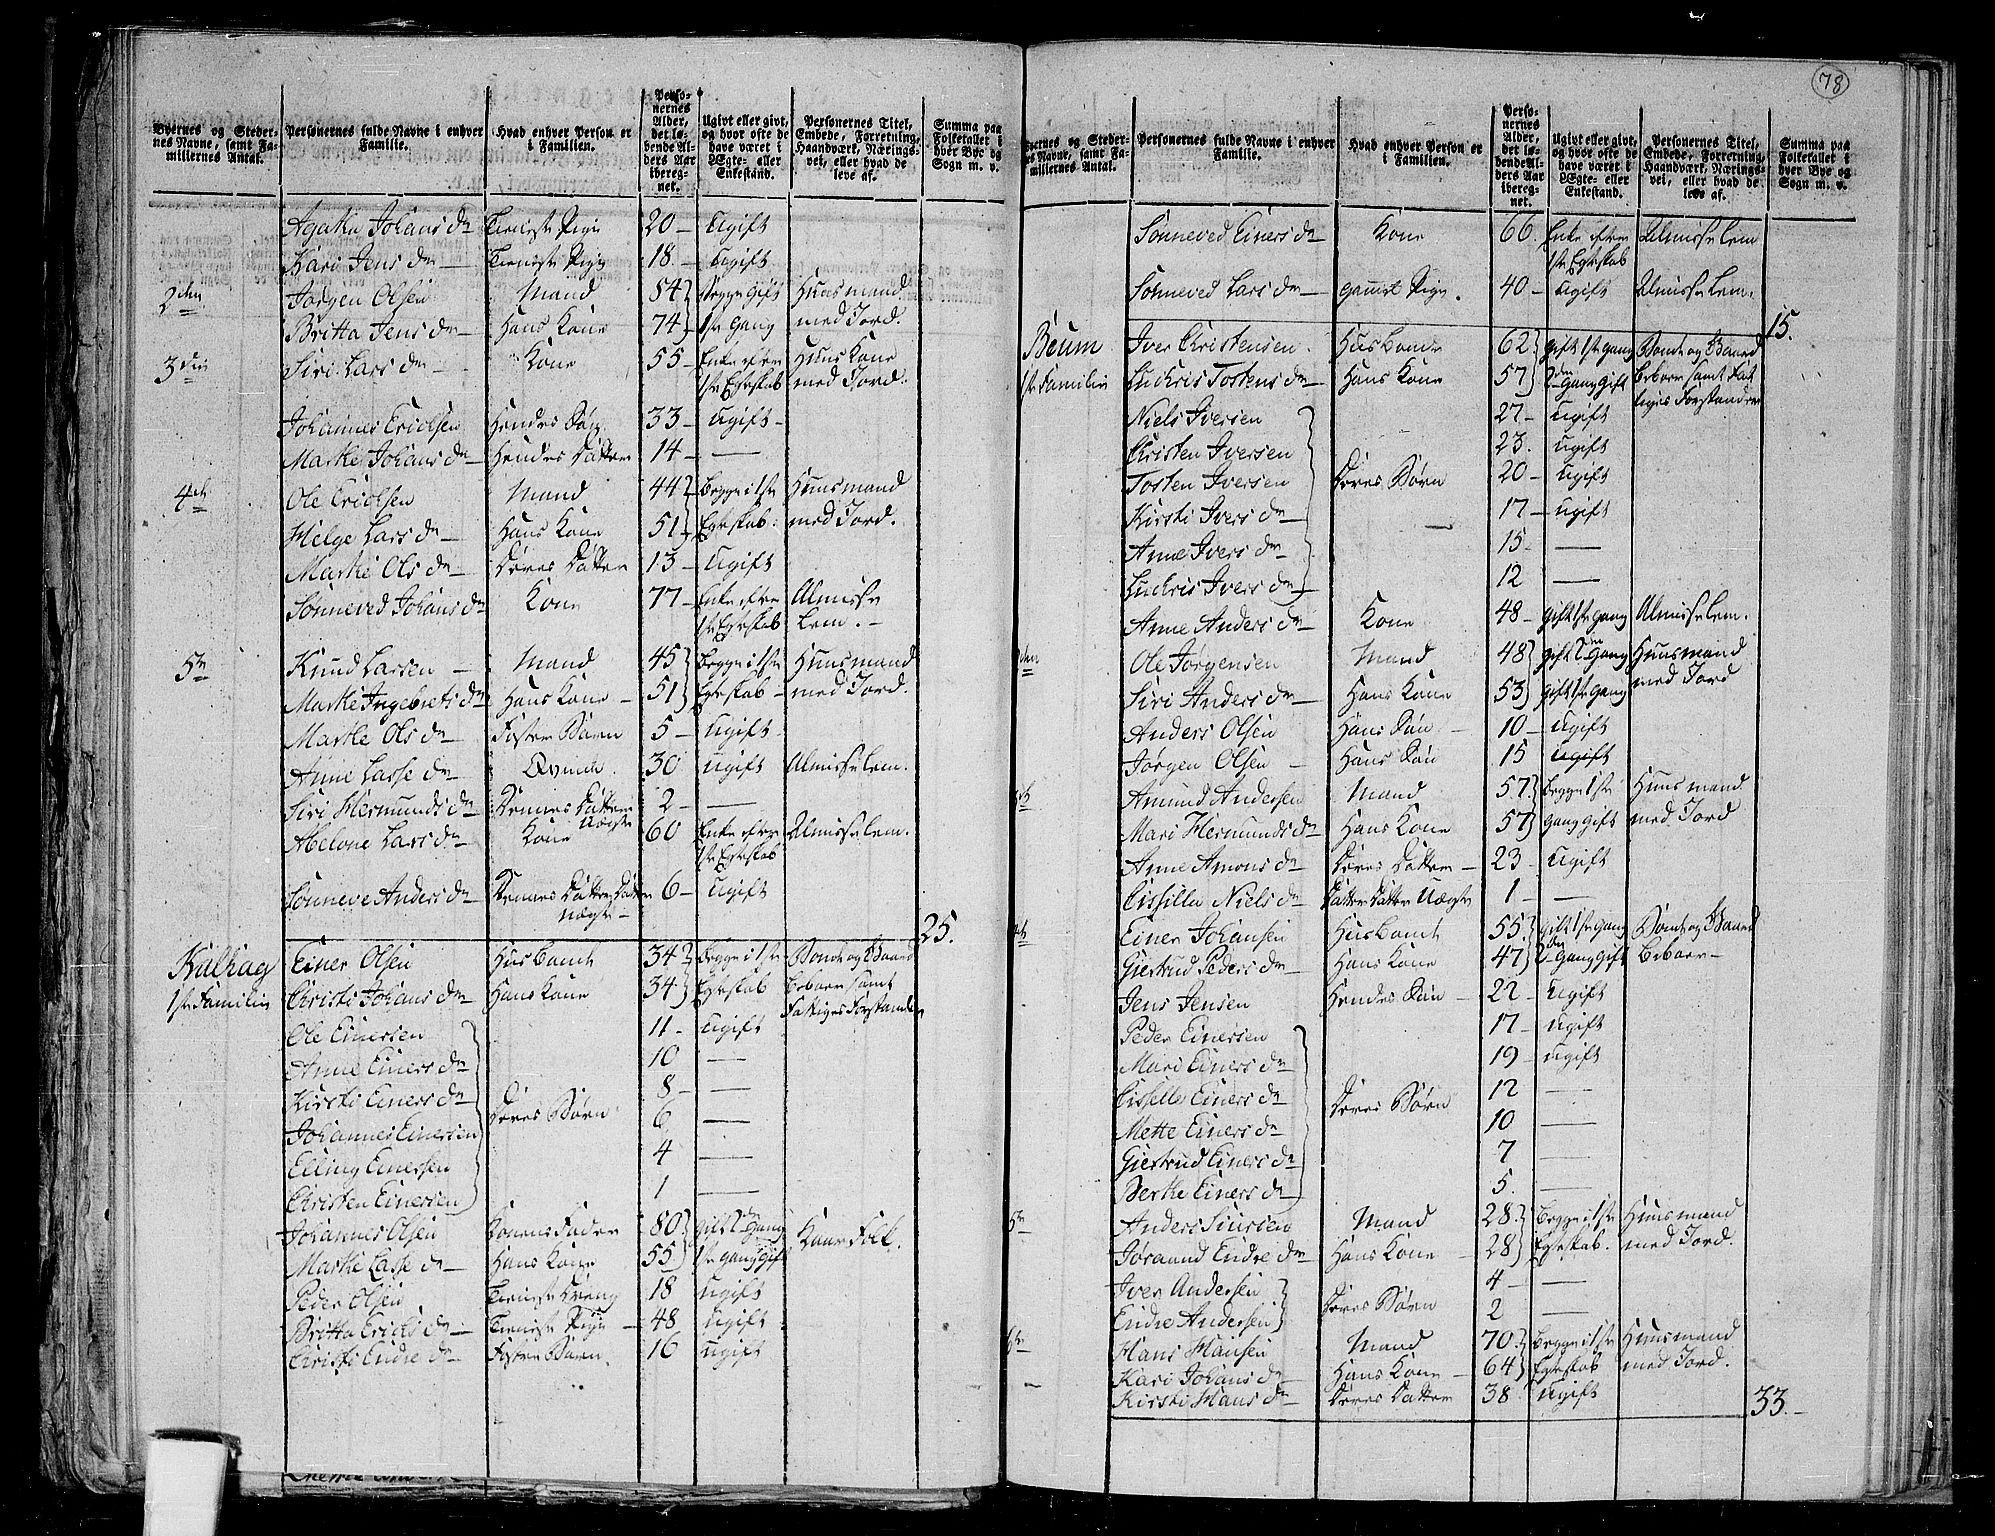 78
Byernes og Steder-nes Navne, samt Fa-miliernes Antal. Personernes fulde Navne i enhver Familie. Hvad enhver Person er i Familien. Perso-nernes Alder, det lø-bende Al-ders Aar iberegnet. Ugivt eller givt, og hvor ofte de have været i Ægte- eller Enkestand. Personernes Titel, Embede, Forretning, Haandværk, Nærings-vei, eller hvad de leve af. Summa paa Folketallet i hver Bye og Sogn m. v.
Agathe Johans dr Tieniste Pige 20 - Ugift
Kari Jens dr Tieniste Pige 18. - Ugift
2den Jørgen Olsen Mand 54 Begge Gift Huusmand
Britta Jens dr Hans Kone 74 1ste Gang med Jord.
3die Siri Lars dr Kone 55 - Enke efter Huus Kone
1ste Egteskab med Jord.
Johannes Ericksen Hendes Søn 33 - Ugift -
Marthe Johans dr Hendes Datter 14 -
4de Ole Ericksen Mand 44 Begge i 1ste Huusmand
Helge Lars dr Hans Kone 51 Egteskab. med Jord.
Marthe Ols dr Deres Datter 13 - Ugift
Sønneved Johans dr Kone 77 - Enke efter Almisse
1ste Egteskab Lem. -
5te Knud Larsen Mand 45 Begge i 1ste Huusmand
Marthe Ingebrets dr Hans Kone 51 Egteskab - med Jord.
Marthe Ols dr Foster Børn 5 - Ugift
Anne Lasse dr Qvinde. 30 Ugift Almisselem.
Siri Hermunds dr Dennes Datter Uægte 2 -
Abelone Lars dr Kone 60 Enke efter Almisselem.
1ste Egteskab
Sønneve Anders dr Dennes Datter Datter Uægte - 6 - Ugift
25.
Kalhag Einer Olsen Husbonde 34 Begge i 1ste Bonde og Gaard
1ste Familie Christi Johans dr Hans Kone 34 Egteskab beboer samt
Fattiges Forstander
Ole Einersen 11 - Ugift
Anne Einers dr 10 -
Kirsti Einers dr 8 -
Johannes Einersen Deres Børn 6 -
Elling Einersen 4 -
Christen Einersen 1 -
Johannes Olsen Konens Fader 80 gift 2den Gang Kaar Folk.
Marthe Lasse dr Hans Kone 55 1ste Gang Gift
Peder Olsen Tieniste Dreng 18 Ugift
Britta Ericks dr Tieniste Pige 48 Ugift
Christi Endre dr Foster Barn. 16 Ugift
Byernes og Steder-nes Navne, samt Fa-miliernes Antal. Personernes fulde Navne i enhver Familie. Hvad enhver Person er i Familien. Perso-nernes Alder, det lø-bende Al-ders Aar iberegnet. Ugivt eller givt, og hvor ofte de have været i Ægte- eller Enkestand. Personernes Titel, Embede, Forretning, Haandværk, Nærings-vei, eller hvad de leve af. Summa paa Folketallet i hver Bye og Sogn m. v.
Sønneved Einers dr Kone 66. Enke efter Almisselem
1ste Egteskab
Sønneved Lars dr gammel Pige. 40 - Ugift Almisselem.
15.
Beum Iver Christensen. Husbonde 62 gift 1ste Gang Bonde og Gaard
1ste Familie Luckris Tostens dr Hans Kone 57 2den Gang Gift beboer samt Fat
tiges Forstander
Niels Iversen 27 - Ugift
Christen Iversen 23. Ugift
Tosten Iversen Deres Børn 20 - Ugift
Kirsti Ivers dr 17 - Ugift
Anne Ivers dr 15 -
Luckris Ivers dr 12 -
Anne Anders dr Kone 48 - gift 1ste Gang Almisselem.
2den Ole Jørgensen Mand 48 gift 2den Gang Huusmand
Siri Anders dr Hans Kone 53 gift 1ste Gang med Jord
Anders Olsen Hans Søn 10 - Ugift
Jørgen Olsen - Hans Søn 15 Ugift
Amund Andersen Mand 57 Begge 1ste Huusmand
Mari Hermunds dr Hans Kone 57 Gang Gift med Jord
Anne Amons dr Deres Datter - 23 - Ugift
Cissilla Niels dr Datter Datter Uægte 1 -
4de Einer Johansen Husbonde 55 gift 1ste Gang Bonde og Gaard
Giertrud Peders dr Hans Kone 47 2den Gang Gift Beboer -
Jens Jensen Hendes Søn - 22 - Ugift
Peder Einersen 17 - Ugift
Mari Einers dr 19 - Ugift
Cissille Einers dr Deres Børn 12 -
Mette Einers dr 10 -
Giertrud Einers dr 7 -
Berthe Einers dr 5. -
5te Anders Siursen Mand 28 Begge i 1ste Huusmand
Jøraand Endre dr Hans Kone - 28 Egteskab. med Jord.
Iver Andersen Deres Børn 4 -
Endre Andersen 2 -
6te Hans Hansen Mand 70 Begge i 1ste Huusmand
Kari Johans dr Hans Kone - 64 Egteskab med Jord.
Kirsti Hans dr Deres Datter 38. Ugift
33.